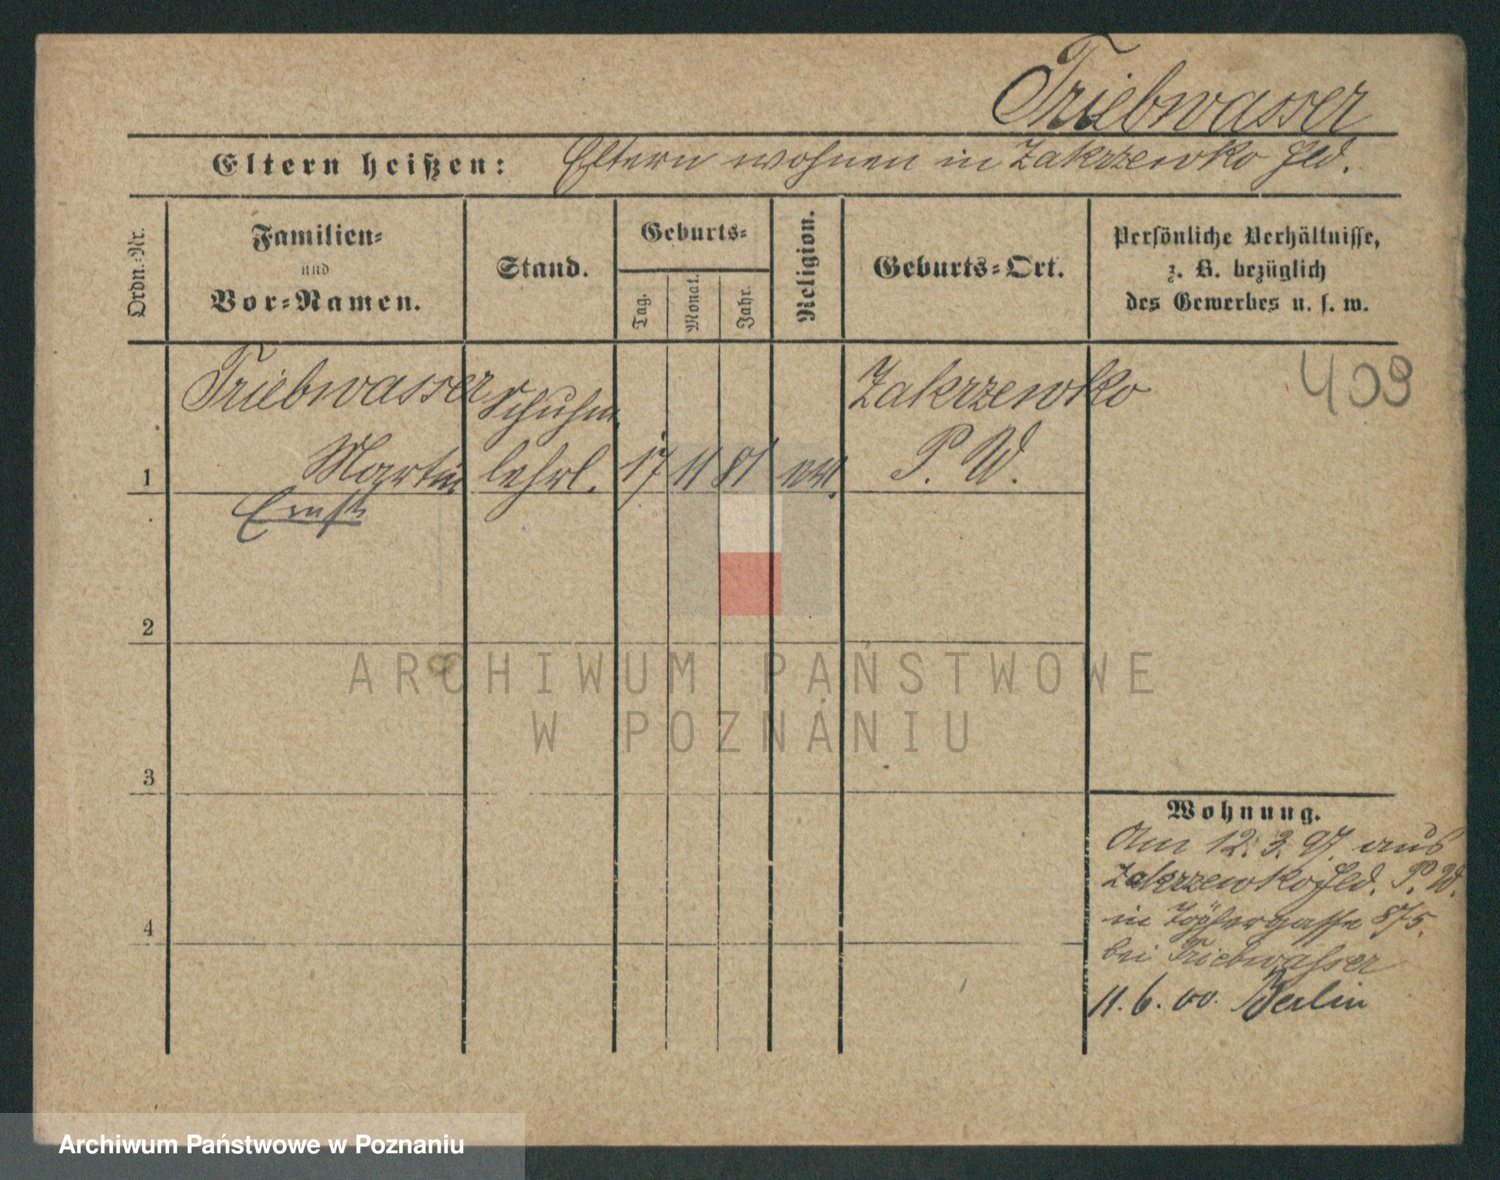 Triebwasser
Eltern heißen: Eltern wohnen in Zakrzewko Hld.
Ordn.-Nr.
Familien-
und
Vor-Namen.
Stand.
Geburts-
Tag.
Monat.
Jahr.
Religion.
Geburts-Ort.
Persönliche Verhältnisse,
z. B. bezüglich
des Gewerbes u. s. w.
409
Triebwasser Schuhm. Zakrzewko
1 Martin lehrl. 17 11 81 P. W.
Ernst
2
3
4
ARCHIWUM PAŃSTWOWE
W POZNANIU
Wohnung.
Am 12.3.97. aus
Zakrzewko Hld. P. W.
in Töpfergasse 8/5.
bei Triebwasser
11.6.00. Berlin
Archiwum Państwowe w Poznaniu